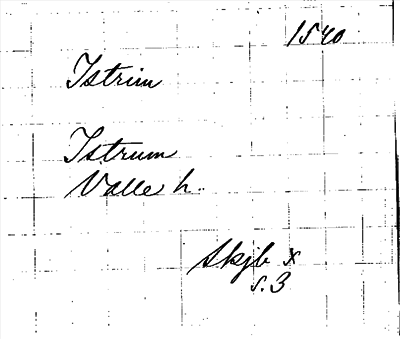 1540
Istrim
Istrum
Valle h.
Skjb x
s. 3